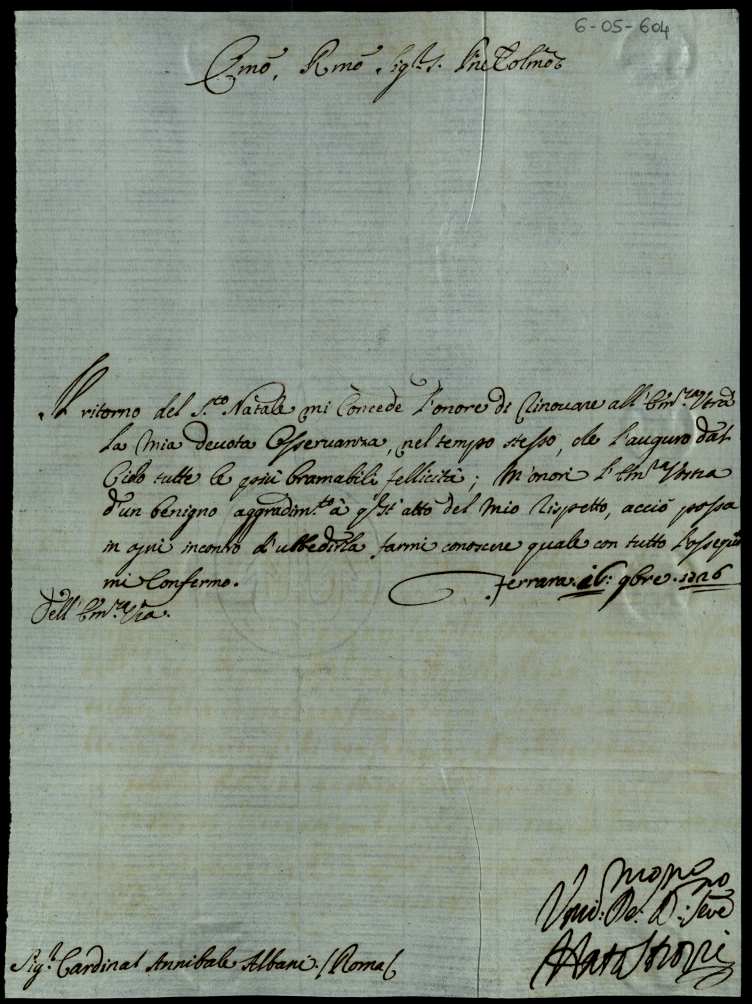 6-05-604
Emo, Rmo Sigr. S. Pne Colmo
Il ritorno del S.to Natale mi Concede l'onore di Rinouare all' Em.za Vtra
la mia deuota Osseruanza, nel tempo stesso, che l'auguro dal
Cielo tutte le più bramabili fellicità; M'onori l' Em.za Vostra
d'un benigno aggradim.to à q.st' atto del mio Rispetto, acciò possa
in ogni incontro d'ubbedirla farmi conoscere quale con tutto l'ossequio
mi Confermo. Ferrara. 26: 9bre. 1726
Dell' Em.za Vra.
Umo: De: D: Sere
Strozzi
Sigr. Cardinal Annibale Albani. /Roma/